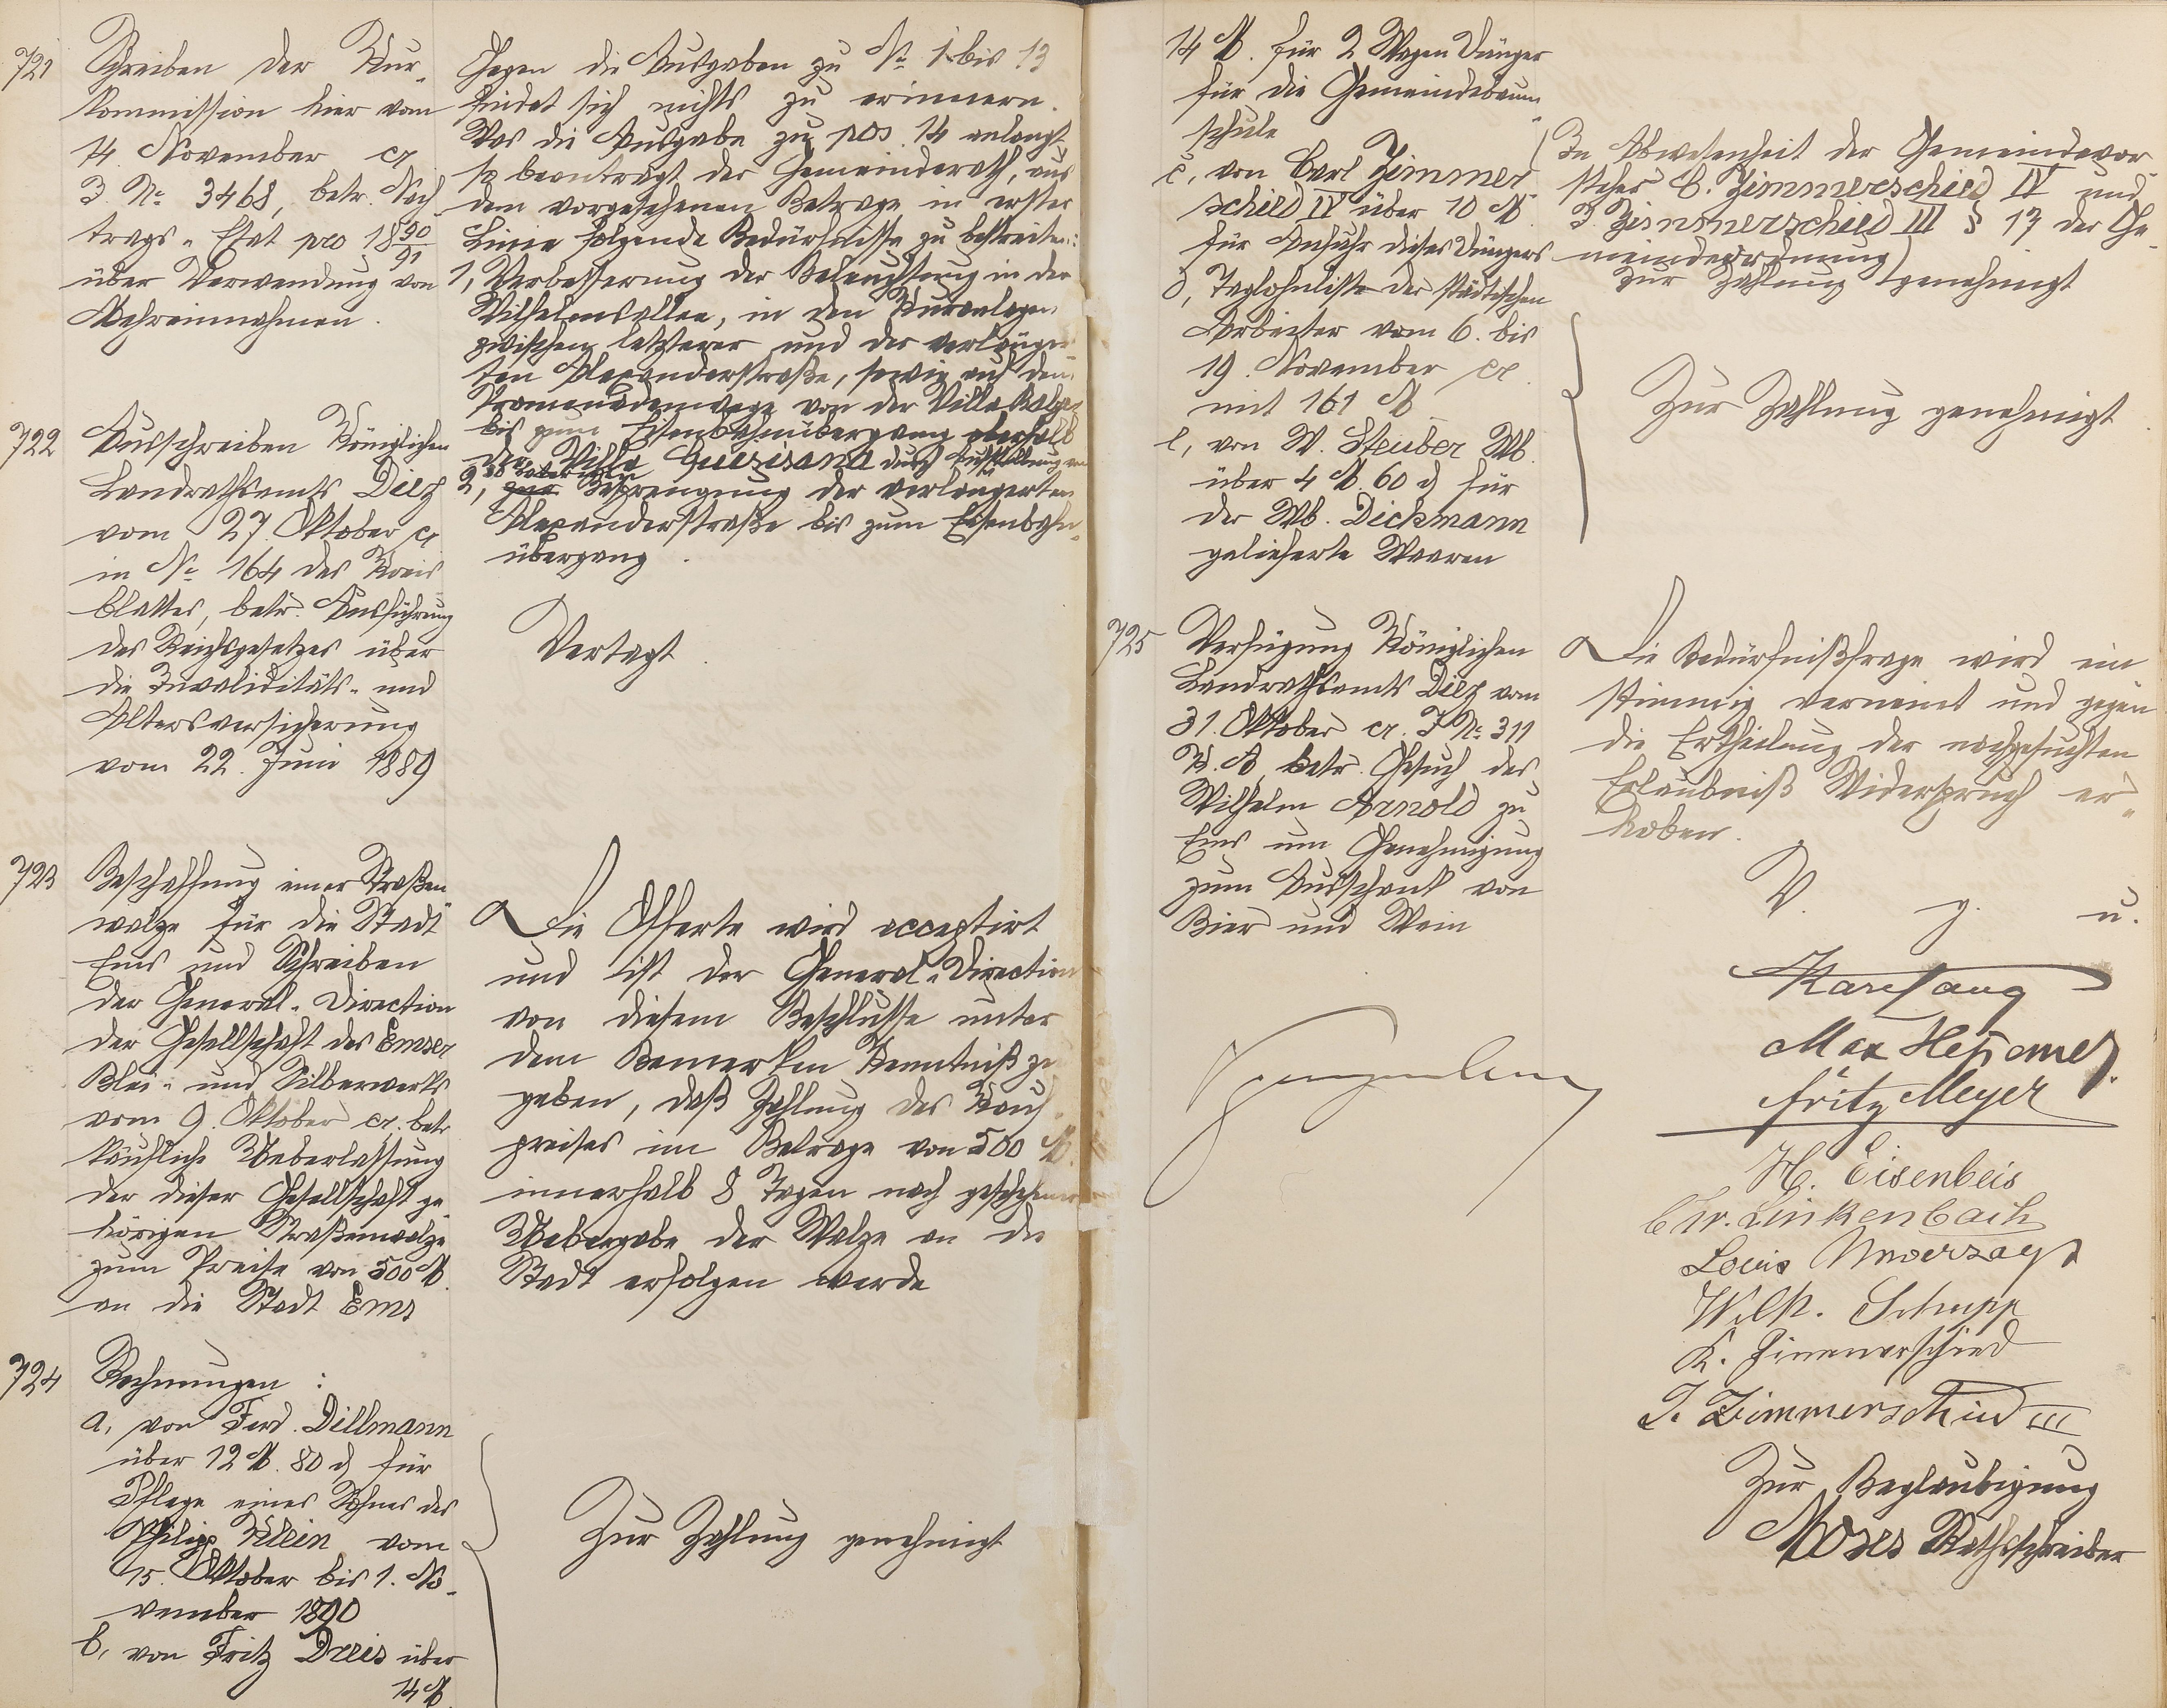 721
Schreiben der Kur-
kommission hier vom
14. November cr.
J. No 3468, betr. Nach
trags-Etat pro 1890/91
über Verwendung von
Mehreinnahmen.
Gegen die Ausgaben zu No 1 bis 13
findet sich nichts zu erinnern.
Was die Ausgabe zu pos. 14 anlangt
so beantragt der Gemeinderath, aus
dem vorgesehenen Betrage in erster
Linie folgende Bedürfnisse zu bestreiten:
1, Verbesserung der Beleuchtung in der
Wilhelmsallee, in den Kuranlagen
zwischen letzterer und der verlänger
ten Alexanderstraße, sowie auf dem
Promenadenwege von der Villa Balzer
bis zum Eisenbahnübergang oberhalb
der Villa Quisisana durch Aufstellung von
2, Besprengung der verlängerten
Alexanderstraße bis zum Eisenbahn-
übergang.
722
Ausschreiben Königlichen
Landrathsamts Diez
vom 27. Oktober cr
in No 164 des Kreis
blattes, betr. Ausführung
des Reichsgesetzes über
die Invaliditäts- und
Altersversicherung
vom 22. Juni 1889
Vertagt.
723
Beschaffung einer Straßen
walze für die Stadt
Ems und Schreiben
der General-Direction
der Gesellschaft des Emser
Blei- und Silberwerks
vom 9. Oktober cr. betr
käufliche Ueberlassung
der dieser Gesellschaft ge
hörigen Straßenwalze
zum Preise von 500 M.
an die Stadt Ems
Die Offerte wird acceptirt
und ist der General-Direction
von diesem Beschlusse unter
dem Bemerken Kenntniß zu
geben, daß Zahlung des Kauf-
preises im Betrage von 500 M.
innerhalb 8 Tagen nach geschehener
Uebergabe der Walze an die
Stadt erfolgen werde
724
Rechnungen:
a, von Ferd. Dillmann
über 12 M. 80 d für
Pflege eines Sohnes des
Philipp Klein vom
15. Oktober bis 1. No-
vember 1890
b, von Fritz Dreis über
14 M.
Zur Zahlung genehmigt
14 M. für 2 Wagen Dünger
für die Gemeindebaum-
schule
c, von Carl Zimmer
schied IV über 10 M.
für Anfuhr dieses Düngers
(In Abwesenheit der Gemeindevor
steher C. Zimmerschied IV und
J. Zimmerschied III § 17 der Ge-
meindeordnung)
zur Zahlung genehmigt
d, Taglohnliste der städtischen
Arbeiter vom 6. bis
19. November cr.
mit 161 M
e, von W. Steuber Wb.
über 4 M. 60 d für
der Wb. Dickmann
gelieferte Waaren
Zur Zahlung genehmigt
725
Verfügung Königlichen
Landrathsamts Diez vom
31. Oktober cr. J No 311
K. A. betr. Gesuch des
Wilhelm Arnold zu
Ems um Genehmigung
zum Ausschank von
Bier und Wein
Die Bedürfnißfrage wird ein
stimmig verneint und gegen
die Ertheilung der nachgesuchten
Erlaubniß Widerspruch er-
hoben.
V. g. u.
Max
Fritz Meyer
H. Eisenbeis
Chr. Linkenbach
Louis Unverzagt
Wilh. Schupp
K. Zimmerschied
J. Zimmerschied III
Zur Beglaubigung
Moses Rathsschreiber